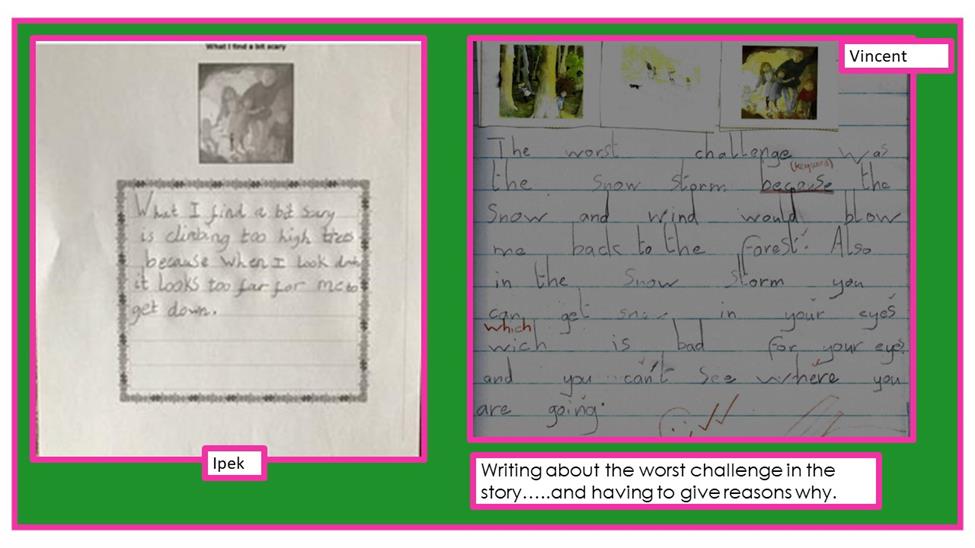 What I find a bit scary
What I find a bit scary
is climbing too high trees
because when I look down
it looks too far for me to
get down.
Ipek
Vincent
The worst challenge was
(keyword)
the snow storm because the
Snow and wind would blow
me back to the forest. Also
in the snow storm you
can get snow in your eyes
which
wich is bad for your eyes
and you can't see where you
are going.
Writing about the worst challenge in the
story.....and having to give reasons why.